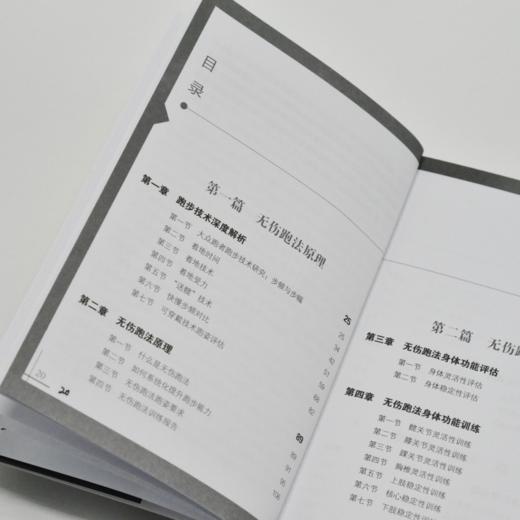 目录
第一篇 无伤跑法原理
第一章 跑步技术深度解析 25
第一节 大众跑者跑步技术研究：步频与步幅 25
第二节 着地时间 34
第三节 着地技术 42
第四节 着地受力 51
第五节 “送髋”技术 59
第六节 快慢步频对比 66
第七节 可穿戴技术跑姿评估 82
第二章 无伤跑法原理 89
第一节 什么是无伤跑法 89
第二节 如何系统化提升跑步能力 91
第三节 无伤跑法跑姿要求 95
第四节 无伤跑法训练报告 106
20
第二篇 无伤跑
第三章 无伤跑法身体功能评估
第一节 身体灵活性评估
第二节 身体稳定性评估
第四章 无伤跑法身体功能训练
第一节 髋关节灵活性训练
第二节 膝关节灵活性训练
第三节 踝关节灵活性训练
第四节 胸椎灵活性训练
第五节 上肢稳定性训练
第六节 核心稳定性训练
第七节 下肢稳定性训练